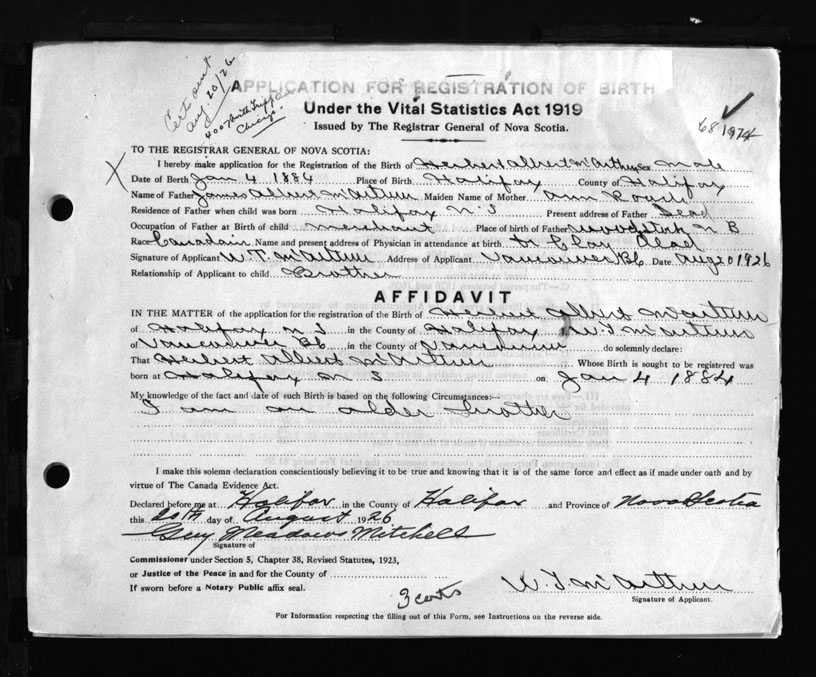 Cert sent
Aug. 20/26
APPLICATION FOR REGISTRATION OF BIRTH
Under the Vital Statistics Act 1919
Issued by The Registrar General of Nova Scotia.
TO THE REGISTRAR GENERAL OF NOVA SCOTIA:
I hereby make application for the Registration of the Birth of Herbert Albert McArthur Sex male
Date of Berth Jan 4 1884 Place of Birth Halifax County of Halifax
Name of Father James Albert McArthur Maiden Name of Mother Ann
Residence of Father when child was born Halifax N.S Present address of Father Dead
Occupation of Father at Birth of child merchant Place of birth of Father Woodstock N B
Race Canadain Name and present address of Physician in attendance at birth Dr Clay Dead
Signature of Applicant W.T. McArthur Address of Applicant Vancouver BC Date Aug 20 1926
Relationship of Applicant to child Brother
AFFIDAVIT
IN THE MATTER of the application for the registration of the Birth of Herbert Albert McArthur
of Halifax N S in the County of Halifax W.T McArthur
of Vancouver BC in the County of Vancouver do solemnly declare:
That Herbert Albert McArthur Whose Birth is sought to be registered was
born at Halifax N S on Jan 4 1884
My knowledge of the fact and date of such Birth is based on the following Circumstances:—
I am an older brother
I make this solemn declaration conscientiously believing it to be true and knowing that it is of the same force and effect as if made under oath and by
virtue of The Canada Evidence Act.
Declared before me at Halifax in the County of Halifax and Province of Nova Scotia
this 20th day of August 1926
Guy Meadows Mitchell
Signature of
Commissioner under Section 5, Chapter 38, Revised Statutes, 1923,
or Justice of the Peace in and for the County of
If sworn before a Notary Public affix seal.
3 certs
W. T McArthur
Signature of Applicant.
For Information respecting the filling out of this Form, see Instructions on the reverse side.